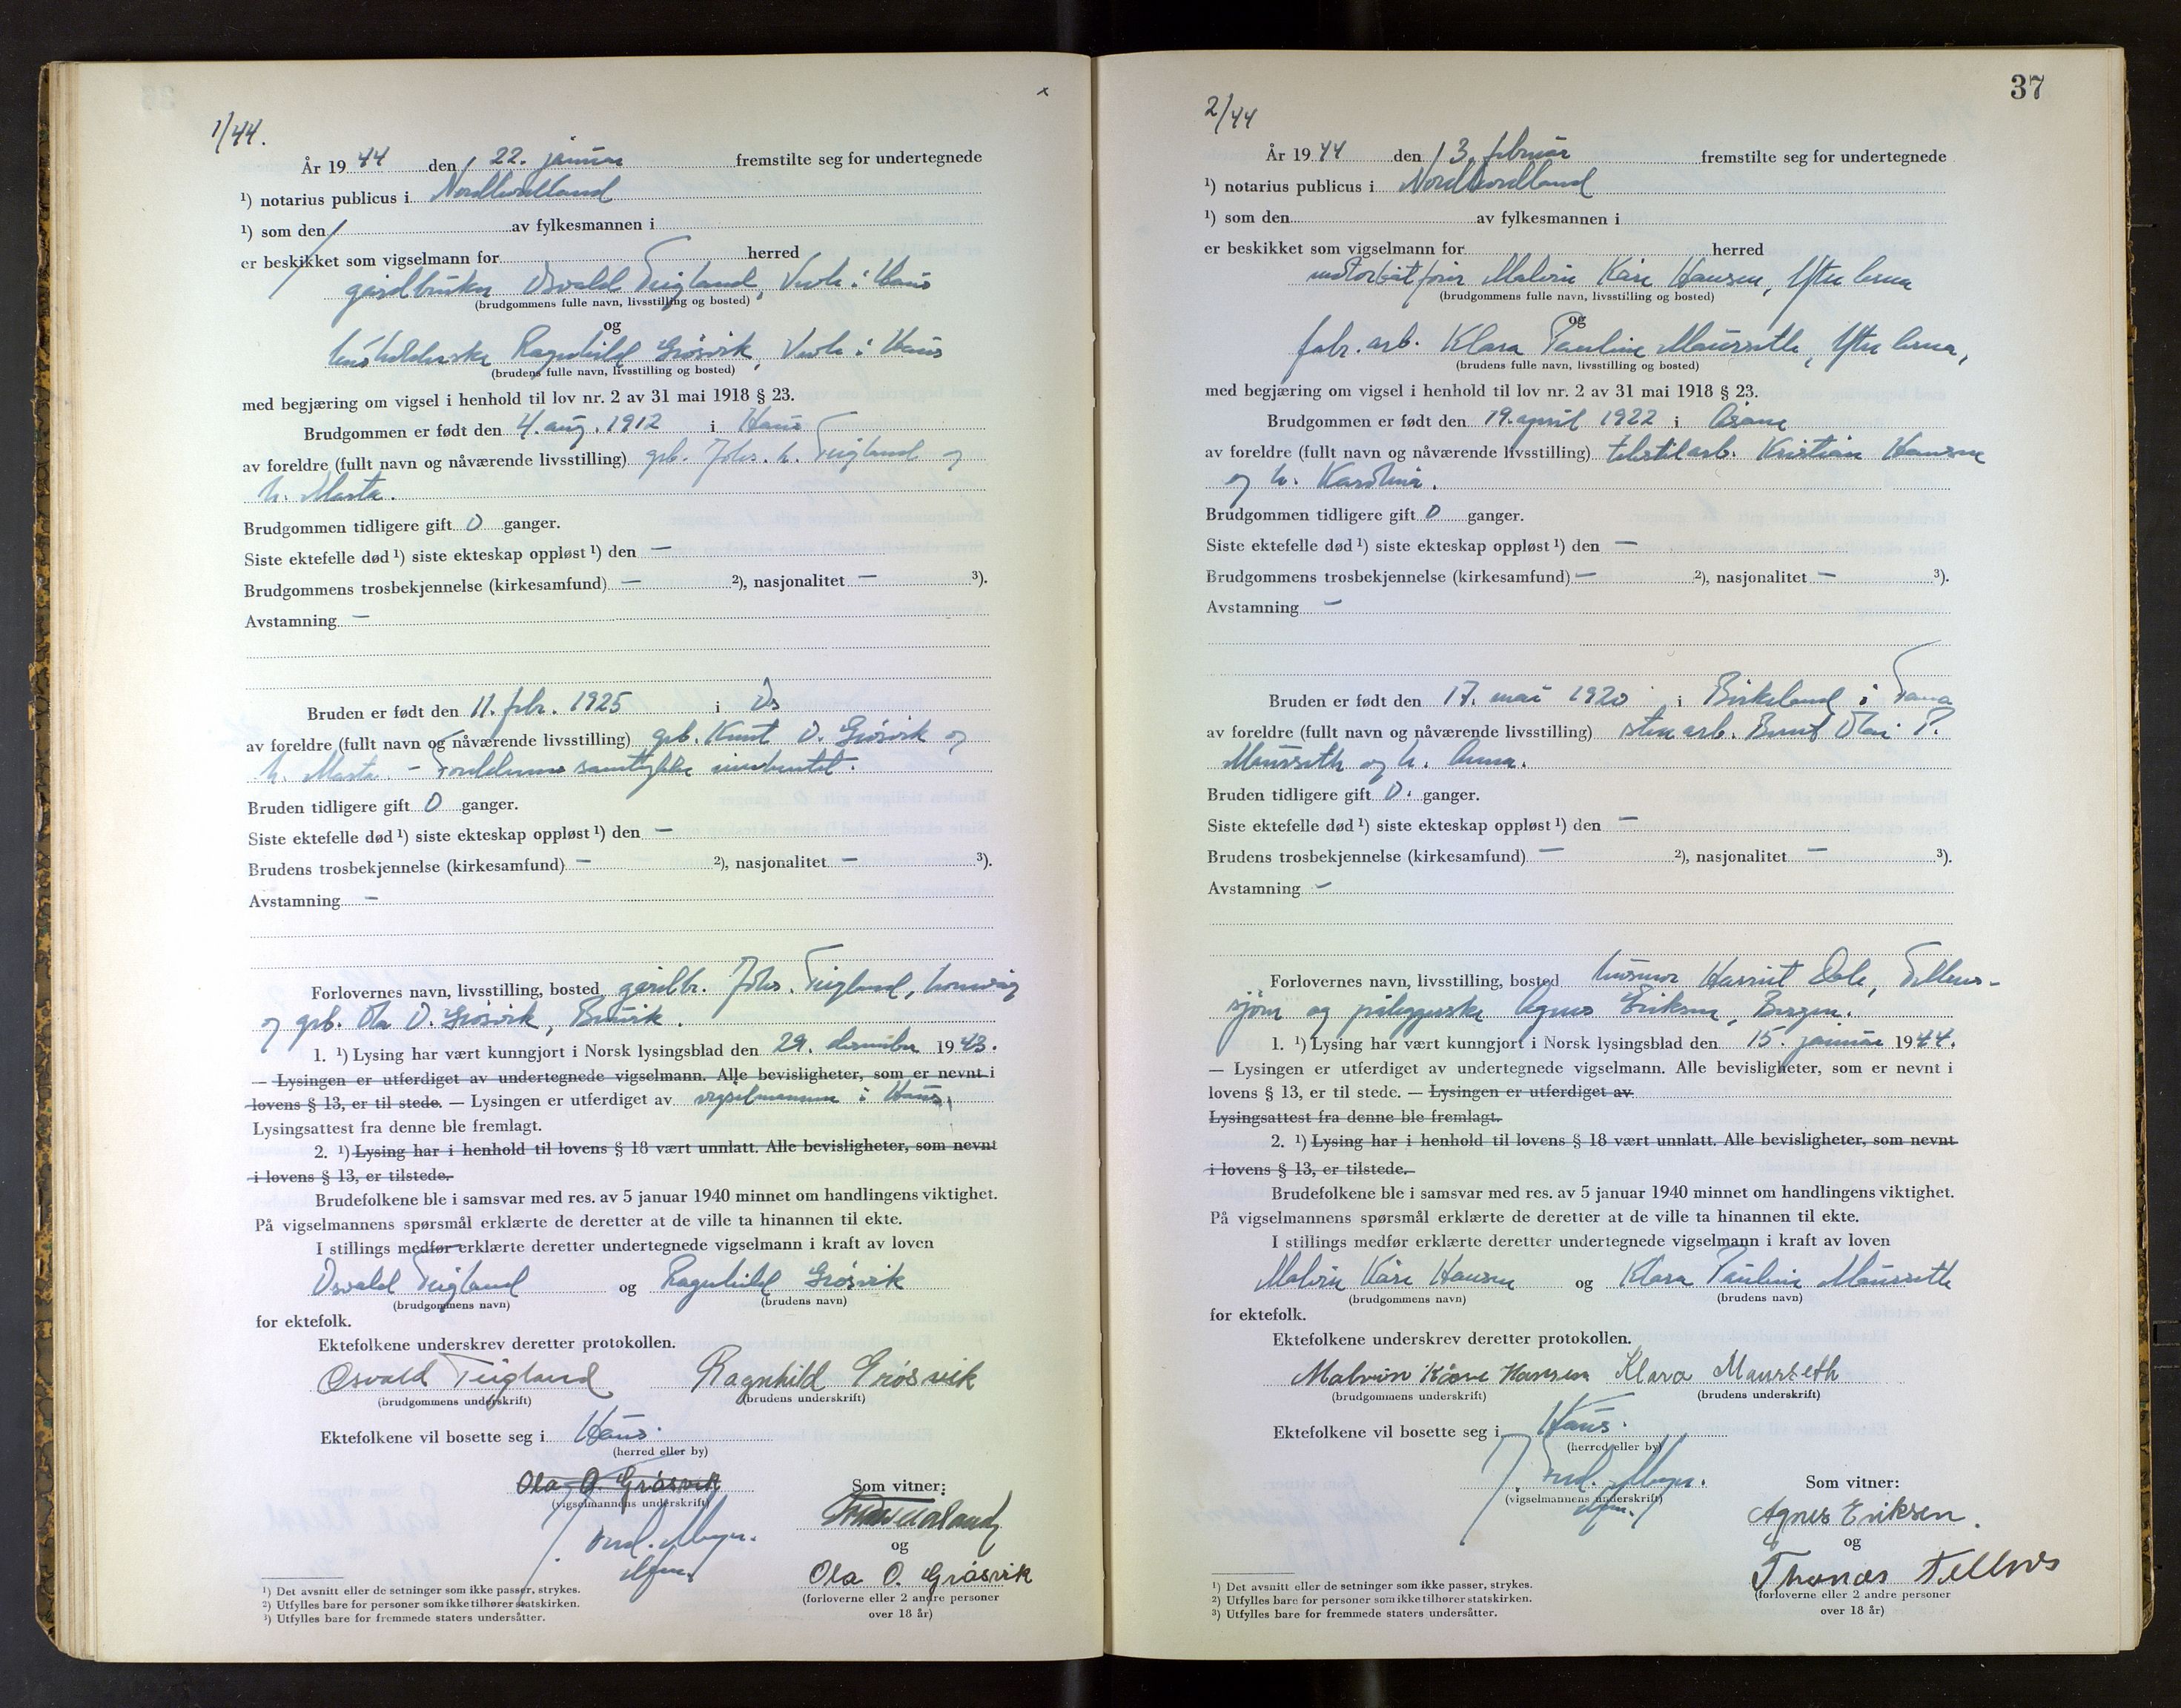 1/44.
År 19 44 den 22. januar fremstilte seg for undertegnede
¹) notarius publicus i Nordhordland
¹) som den av fylkesmannen i
er beskikket som vigselmann for herred
gårdbruker Osvald Teigland, i Haus
(brudgommens fulle navn, livsstilling og bosted)
og
husholderske Ragnhild Grøsvik, i Haus
(brudens fulle navn, livsstilling og bosted)
med begjæring om vigsel i henhold til lov nr. 2 av 31 mai 1918 § 23.
Brudgommen er født den 4. aug. 1912 i Haus
av foreldre (fullt navn og nåværende livsstilling) grb. Johs. Teigland og
h. Marta.
Brudgommen tidligere gift 0 ganger.
Siste ektefelle død ¹) siste ekteskap oppløst ¹) den —
Brudgommens trosbekjennelse (kirkesamfund) — ²), nasjonalitet — ³).
Avstamning —
Bruden er født den 11. febr. 1925 i Os
av foreldre (fullt navn og nåværende livsstilling) grb. Knut O. Grøsvik og
h. Marta. – Foreldrenes samtykke innhentet.
Bruden tidligere gift 0 ganger.
Siste ektefelle død ¹) siste ekteskap oppløst ¹) den —
Brudens trosbekjennelse (kirkesamfund) — ²), nasjonalitet — ³).
Avstamning —
Forlovernes navn, livsstilling, bosted gårdbr. Johs. Teigland,
og grb. Ola O. Grøsvik,
1. ¹) Lysing har vært kunngjort i Norsk lysingsblad den 29. desember 1943.
— Lysingen er utferdiget av undertegnede vigselmann. Alle bevisligheter, som er nevnt i
lovens § 13, er til stede. — Lysingen er utferdiget av vigselmannen i Haus,
Lysingsattest fra denne ble fremlagt.
2. ¹) Lysing har i henhold til lovens § 18 vært unnlatt. Alle bevisligheter, som nevnt
i lovens § 13, er tilstede.
Brudefolkene ble i samsvar med res. av 5 januar 1940 minnet om handlingens viktighet.
På vigselmannens spørsmål erklærte de deretter at de ville ta hinannen til ekte.
I stillings medfør erklærte deretter undertegnede vigselmann i kraft av loven
Osvald Teigland og Ragnhild Grøsvik
(brudgommens navn) (brudens navn)
for ektefolk.
Ektefolkene underskrev deretter protokollen.
Osvald Teigland Ragnhild Grøsvik
(brudgommens underskrift) (brudens underskrift)
Ektefolkene vil bosette seg i Haus.
(herred eller by)
Ola O. Grøsvik
(vigselmannens underskrift)
Som vitner:
og
Ola O. Grøsvik
(forloverne eller 2 andre personer
over 18 år)
¹) Det avsnitt eller de setninger som ikke passer, strykes.
²) Utfylles bare for personer som ikke tilhører statskirken.
³) Utfylles bare for fremmede staters undersåtter.
37
2/44
År 19 44 den 3. februar fremstilte seg for undertegnede
¹) notarius publicus i Nordhordland
¹) som den av fylkesmannen i
er beskikket som vigselmann for herred
motorbåtfører Malvin Kåre Hansen, Ytre Arna
(brudgommens fulle navn, livsstilling og bosted)
og
fabr. arb. Klara Pauline Maurseth, Ytre Arna,
(brudens fulle navn, livsstilling og bosted)
med begjæring om vigsel i henhold til lov nr. 2 av 31 mai 1918 § 23.
Brudgommen er født den 19. april 1922 i Åsane
av foreldre (fullt navn og nåværende livsstilling) tekstilarb. Kristian Hansen
og h. Karolina.
Brudgommen tidligere gift 0 ganger.
Siste ektefelle død ¹) siste ekteskap oppløst ¹) den —
Brudgommens trosbekjennelse (kirkesamfund) — ²), nasjonalitet — ³).
Avstamning —
Bruden er født den 17. mai 1920 i Birkeland i Fana
av foreldre (fullt navn og nåværende livsstilling) stenarb. Bernt Olai P.
Maurseth og h. Anna.
Bruden tidligere gift 0. ganger.
Siste ektefelle død ¹) siste ekteskap oppløst ¹) den —
Brudens trosbekjennelse (kirkesamfund) — ²), nasjonalitet — ³).
Avstamning —
Forlovernes navn, livsstilling, bosted husmor Harriet Dale,
og påleggerske Agnes Eriksen, Bergen.
1. ¹) Lysing har vært kunngjort i Norsk lysingsblad den 15. januar 1944.
— Lysingen er utferdiget av undertegnede vigselmann. Alle bevisligheter, som er nevnt i
lovens § 13, er til stede. — Lysingen er utferdiget av
Lysingsattest fra denne ble fremlagt.
2. ¹) Lysing har i henhold til lovens § 18 vært unnlatt. Alle bevisligheter, som nevnt
i lovens § 13, er tilstede.
Brudefolkene ble i samsvar med res. av 5 januar 1940 minnet om handlingens viktighet.
På vigselmannens spørsmål erklærte de deretter at de ville ta hinannen til ekte.
I stillings medfør erklærte deretter undertegnede vigselmann i kraft av loven
Malvin Kåre Hansen og Klara Pauline Maurseth
(brudgommens navn) (brudens navn)
for ektefolk.
Ektefolkene underskrev deretter protokollen.
Malvin Kåre Hansen Klara Maurseth
(brudgommens underskrift) (brudens underskrift)
Ektefolkene vil bosette seg i Haus.
(herred eller by)
(vigselmannens underskrift)
Som vitner:
Agnes Eriksen.
og
Thomas Tellnes
(forloverne eller 2 andre personer
over 18 år)
¹) Det avsnitt eller de setninger som ikke passer, strykes.
²) Utfylles bare for personer som ikke tilhører statskirken.
³) Utfylles bare for fremmede staters undersåtter.